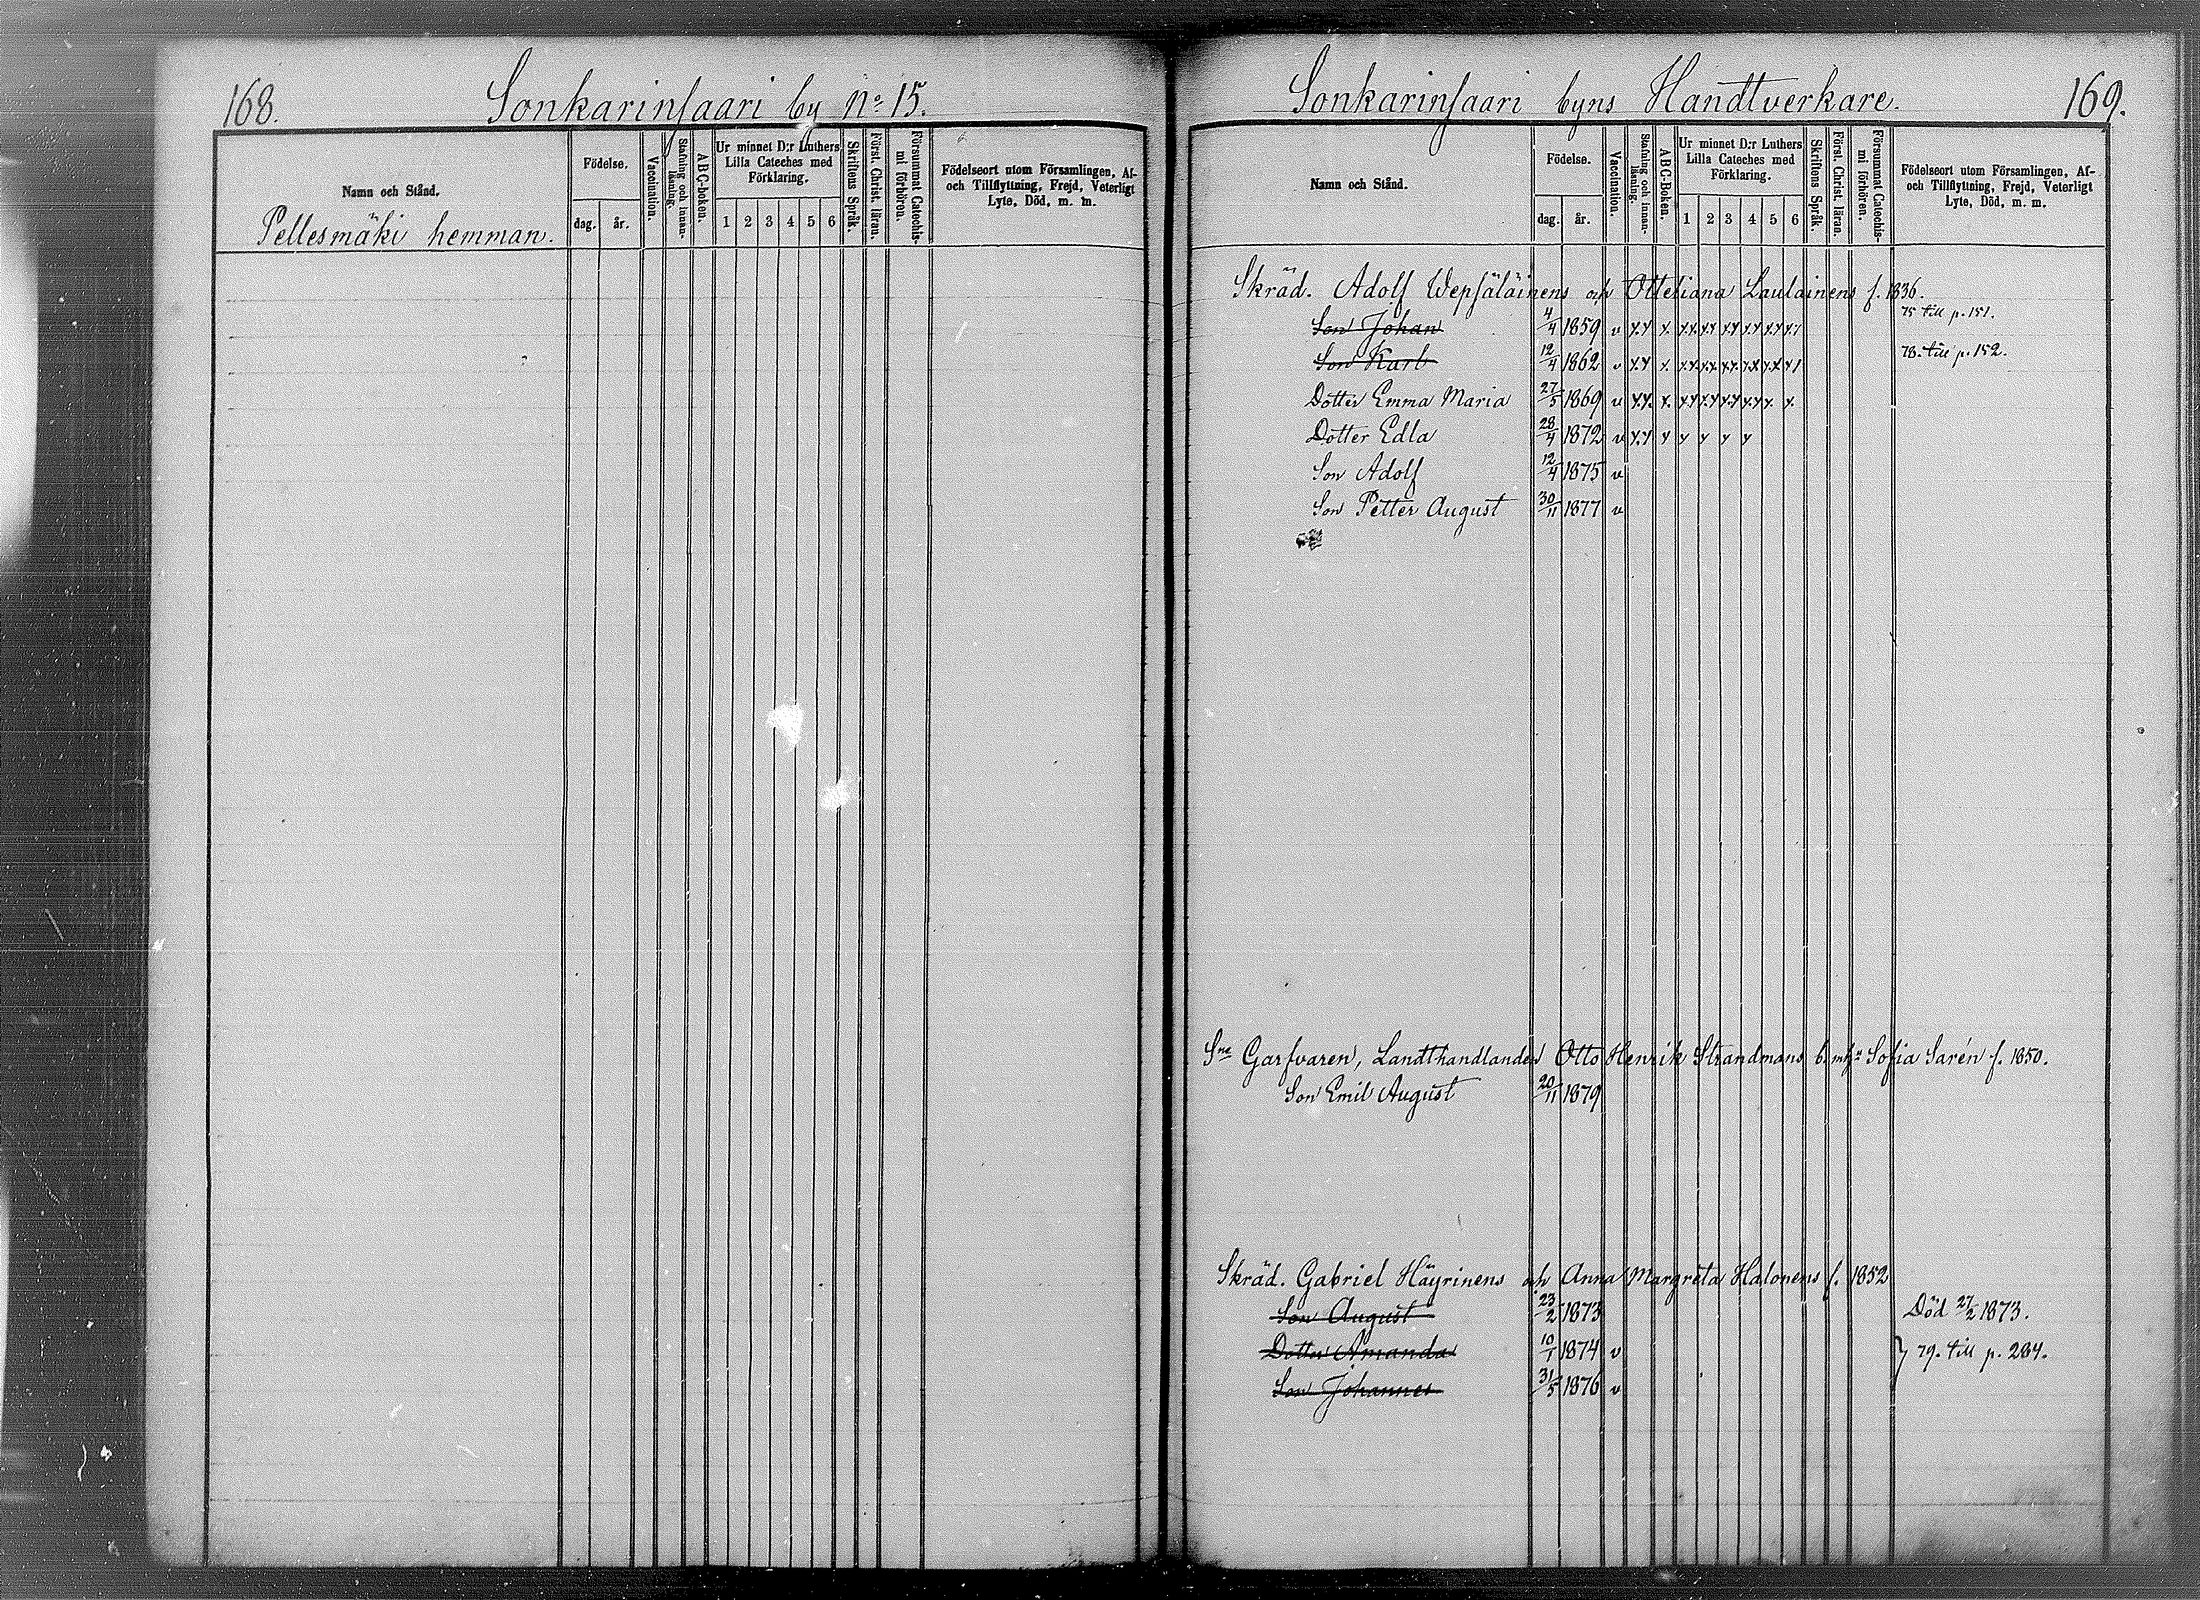 168.
Sonkarinsaari by No 15.
Namn och Stånd.
Födelse.
dag.
år.
Vaccination.
Stafning och innan-
läsning.
ABC-boken.
Ur minnet D:r Luthers
Lilla Cateches med
Förklaring.
1 2 3 4 5 6
Skriftens Språk.
Först. Christ. läran.
Försummat Catechis-
mi förhören.
Födelseort utom Församlingen, Af-
och Tillflyttning, Frejd, Veterligt
Lyte, Död, m. m.
Pellesmäki hemman.
Sonkarinsaari byns Handtverkare.
169.
Namn och Stånd.
Födelse.
dag.
år.
Vaccination.
Stafning och innan-
läsning.
ABC-Boken.
Ur minnet D:r Luthers
Lilla Cateches med
Förklaring.
1 2 3 4 5 6
Skriftens Språk.
Först. Christ. läran.
Försummat Catechis-
mi förhören.
Födelseort utom Församlingen, Af-
och Tillflyttning, Frejd, Veterligt
Lyte, Död, m. m.
Skräd. Adolf Wepsäläinens och Otteliana Laulainens f. 1836.
Son Johan 4/4 1859 v 75 till p. 151.
Son Karl 12/4 1862 v 78. till p. 152.
Dotter Emma Maria 27/5 1869 v
Dotter Edla 28/4 1872 v
Son Adolf 12/4 1875 v
Son Petter August 30/11 1877 v
Sne Garfvaren, Landthandlanden Otto Henrik Strandmans o. Sofia Sarén f. 1850.
Son Emil August 20/11 1879
Skräd. Gabriel Häyrinens och Anna Margreta Halonens f. 1852
Son August 23/2 1873 Död 27/2 1873.
Dotter Amanda 10/1 1874 v } 79. till p. 284.
Son Johannes 31/5 1876 v